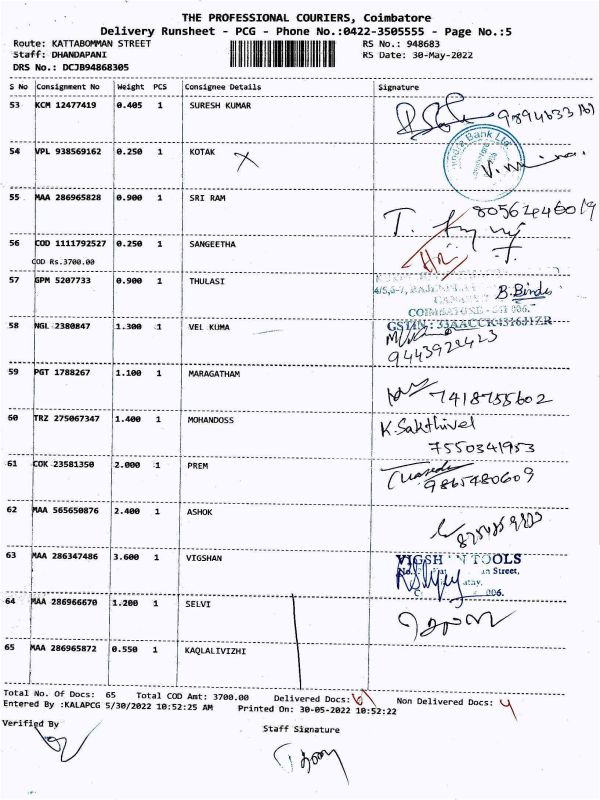 THE PROFESSIONAL COURIERS, Coimbatore
Delivery Runsheet - PCG - Phone No.:0422-3505555 - Page No.:5
Route: KATTABOMMAN STREET RS No.: 948683
Staff: DHANDAPANI RS Date: 30-May-2022
DRS No.: DCJB94868305
S No Consignment No Weight PCS Consignee Details Signature
53 KCM 12477419 0.405 1 SURESH KUMAR
54 VPL 938569162 0.250 1 KOTAK X
55 MAA 286965828 0.900 1 SRI RAM
8056246019
56 COD 1111792527 0.250 1 SANGEETHA
COD Rs.3700.00
57 GPM 5207733 0.900 1 THULASI
B.Bindu
COIMBATORE
GSTIN : 33AACCK4316J1ZR
58 NGL 2380847 1.300 1 VEL KUMA
9443922423
59 PGT 1788267 1.100 1 MARAGATHAM
7418755602
60 TRZ 275067347 1.400 1 MOHANDOSS K. Sakthivel
7550341953
61 COK 23581350 2.000 1 PREM
9865480609
62 MAA 565650876 2.400 1 ASHOK
63 MAA 286347486 3.600 1 VIGSHAN
TOOLS
Street,
006.
64 MAA 286966670 1.200 1 SELVI
65 MAA 286965872 0.550 1 KAQLALIVIZHI
Total No. Of Docs: 65 Total COD Amt: 3700.00 Delivered Docs: 61 Non Delivered Docs: 4
Entered By :KALAPCG 5/30/2022 10:52:25 AM Printed On: 30-05-2022 10:52:22
Verified By
Staff Signature